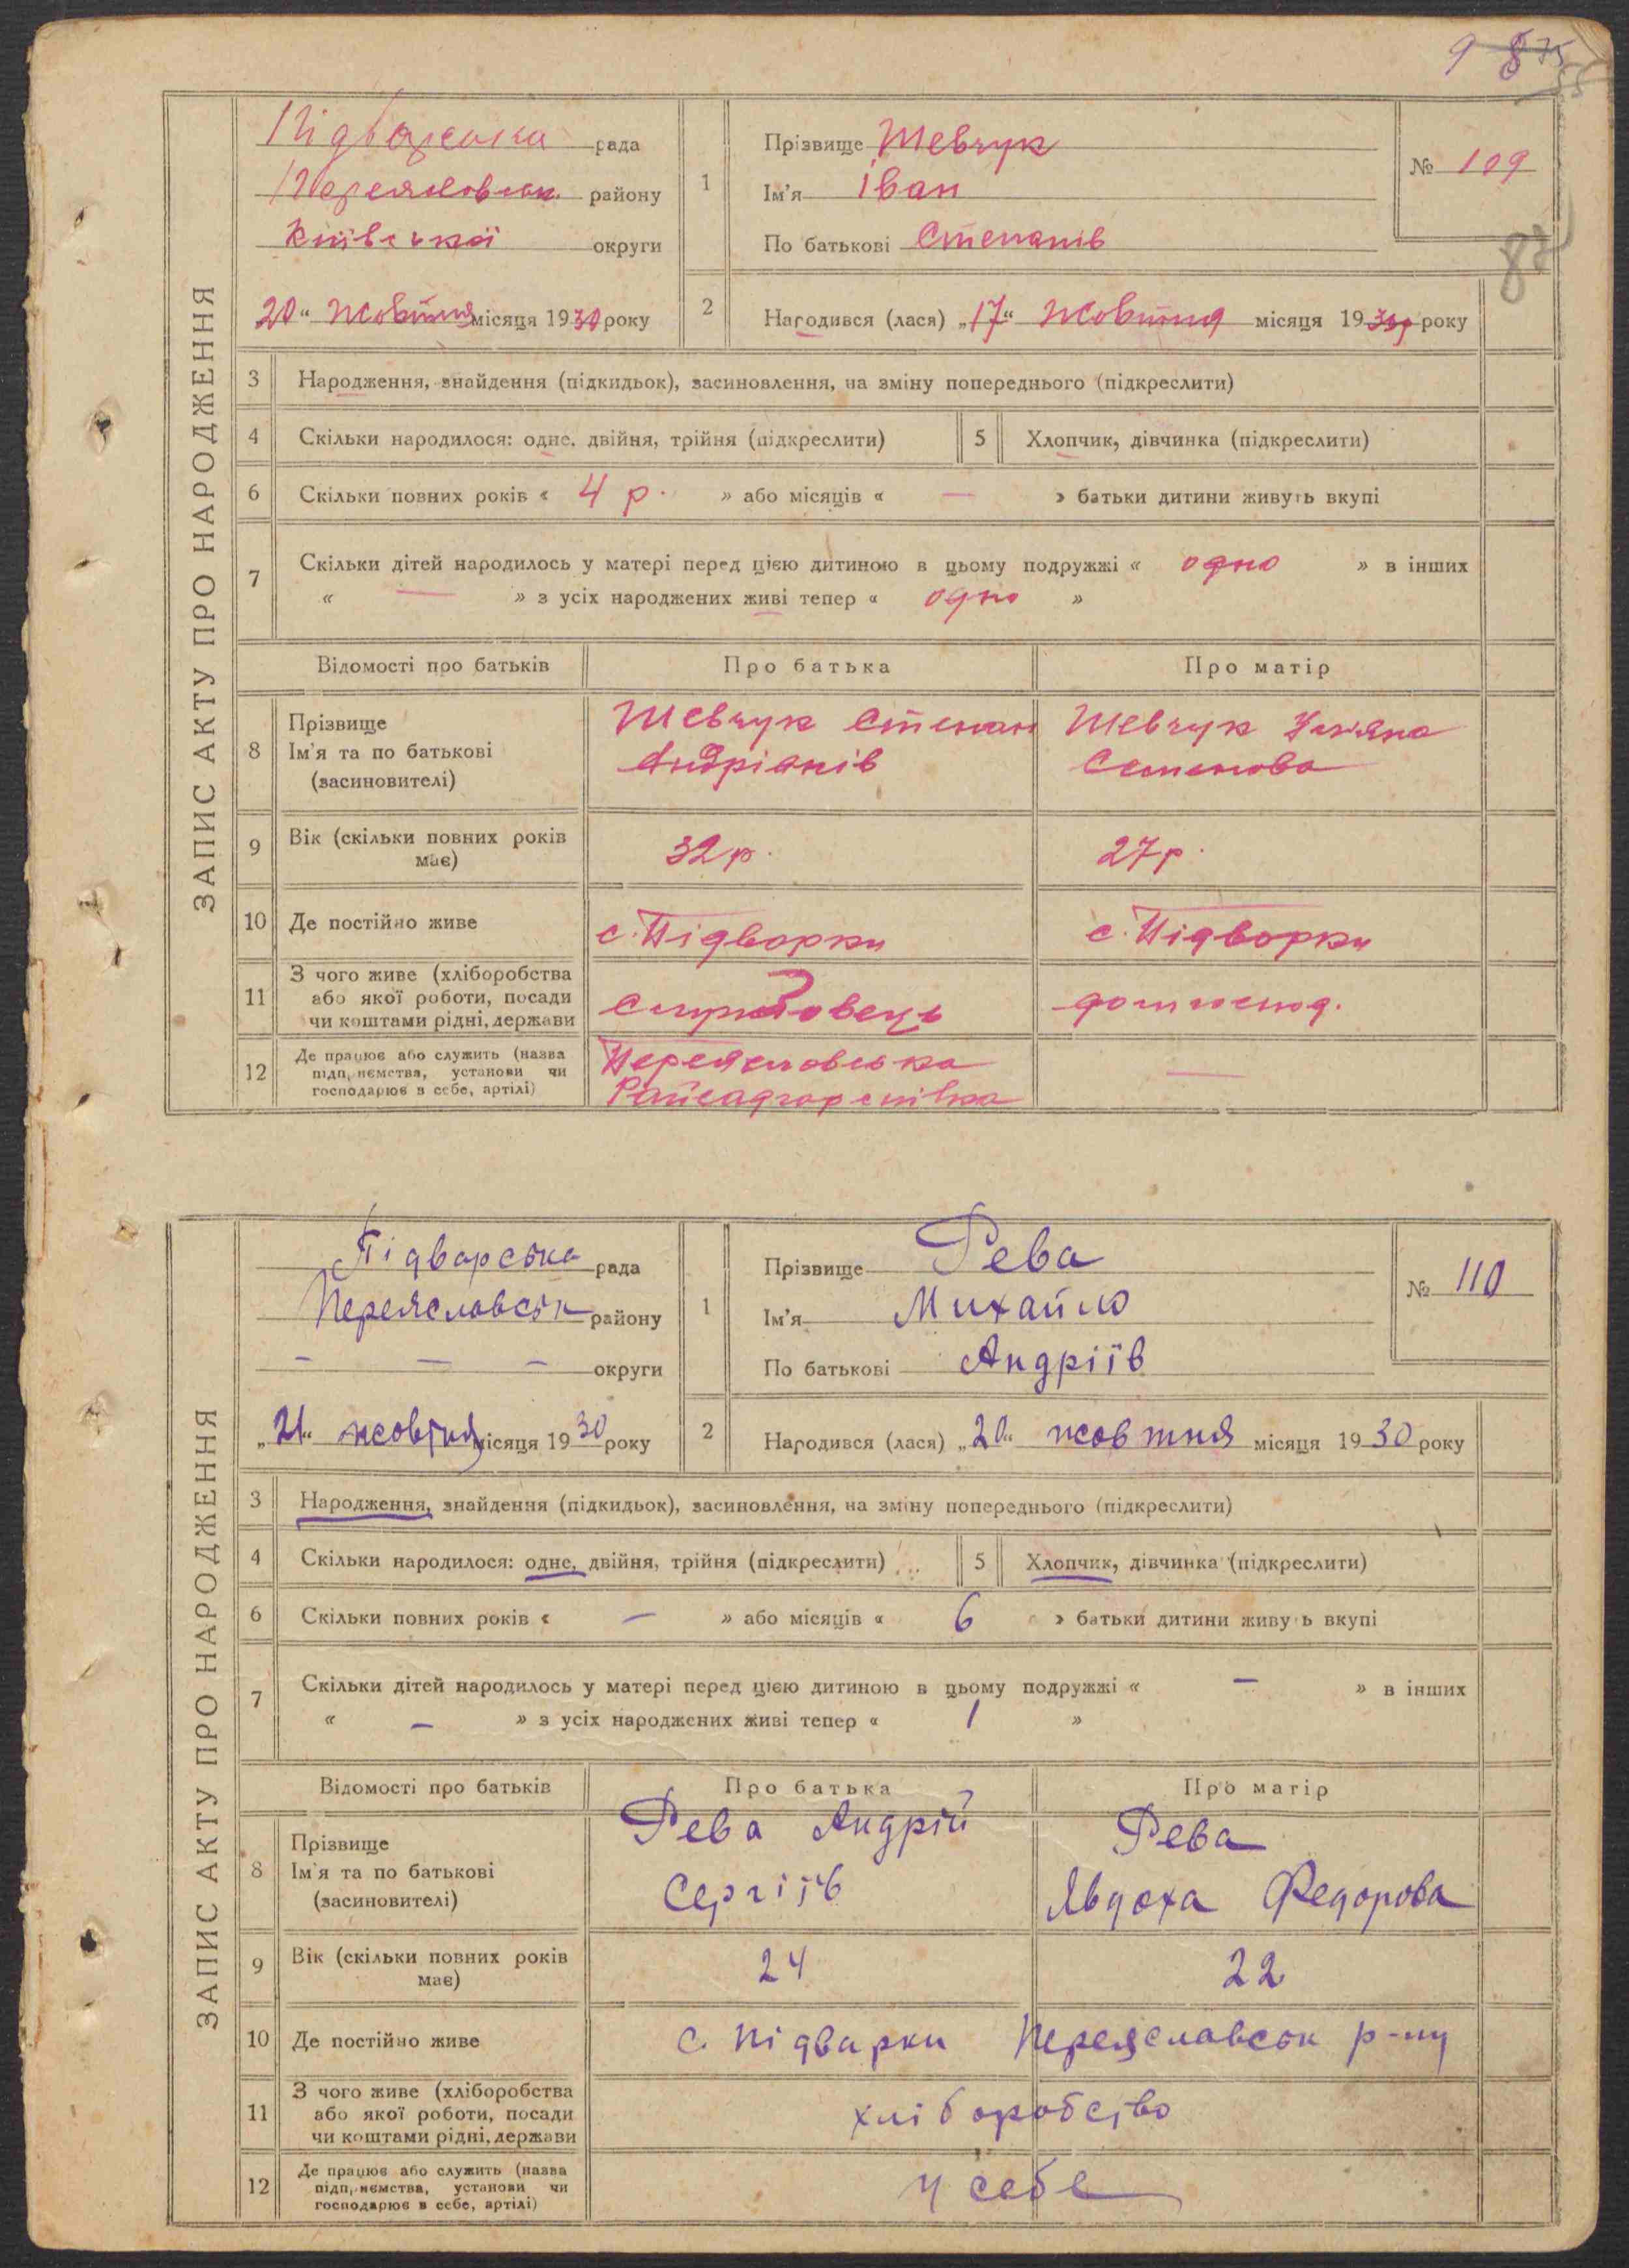 9 8 75
55
ЗАПИС АКТУ ПРО НАРОДЖЕННЯ
Підварська рада
Переяславськ. району
Київської округи
20 “ Жовтня місяця 1930 року
1
Прізвище Шевчук
Ім’я Іван
По батькові Степанів
№ 109
87
2
Народився (лася) „17“ Жовтня місяця 1930 року
3 Народження, знайдення (підкидьок), засиновлення, на зміну попереднього (підкреслити)
4 Скільки народилося: одне, двійня, трійня (підкреслити) 5 Хлопчик, дівчинка (підкреслити)
6 Скільки повних років « 4 р. » або місяців « — » батьки дитини живуть вкупі
7 Скільки дітей народилось у матері перед цією дитиною в цьому подружжі « одно » в інших
« — » з усіх народжених живі тепер « одно »
Відомості про батьків Про батька Про матір
8 Прізвище
Ім’я та по батькові
(засиновителі)
Шевчук Степан
Андріянів
Шевчук Уляна
Семенова
9 Вік (скільки повних років
має)
32 р. 27 р.
10 Де постійно живе с. Підворки с. Підворки
11 З чого живе (хліборобства
або якої роботи, посади
чи коштами рідні, держави
дом господ.
12 Де працює або служить (назва
підприємства, установи чи
господарює в себе, артілі)
Переяславська
—
ЗАПИС АКТУ ПРО НАРОДЖЕННЯ
Підварська рада
Переяславськ району
— — — округи
„21“ жовтня місяця 1930 року
1
Прізвище Рева
Ім’я Михайло
По батькові Андріїв
№ 110
2
Народився (лася) „20“ жовтня місяця 1930 року
3 Народження, знайдення (підкидьок), засиновлення, на зміну попереднього (підкреслити)
4 Скільки народилося: одне, двійня, трійня (підкреслити) 5 Хлопчик, дівчинка (підкреслити)
6 Скільки повних років « — » або місяців « 6 » батьки дитини живуть вкупі
7 Скільки дітей народилось у матері перед цією дитиною в цьому подружжі « — » в інших
« — » з усіх народжених живі тепер « 1 »
Відомості про батьків Про батька Про матір
8 Прізвище
Ім’я та по батькові
(засиновителі)
Рева Андрій
Сергіїв
Рева
Явдоха Федорова
9 Вік (скільки повних років
має)
24 22
10 Де постійно живе с. Підварки Переяславськ р-ну
11 З чого живе (хліборобства
або якої роботи, посади
чи коштами рідні, держави
хліборобство
12 Де працює або служить (назва
підприємства, установи чи
господарює в себе, артілі)
у себе